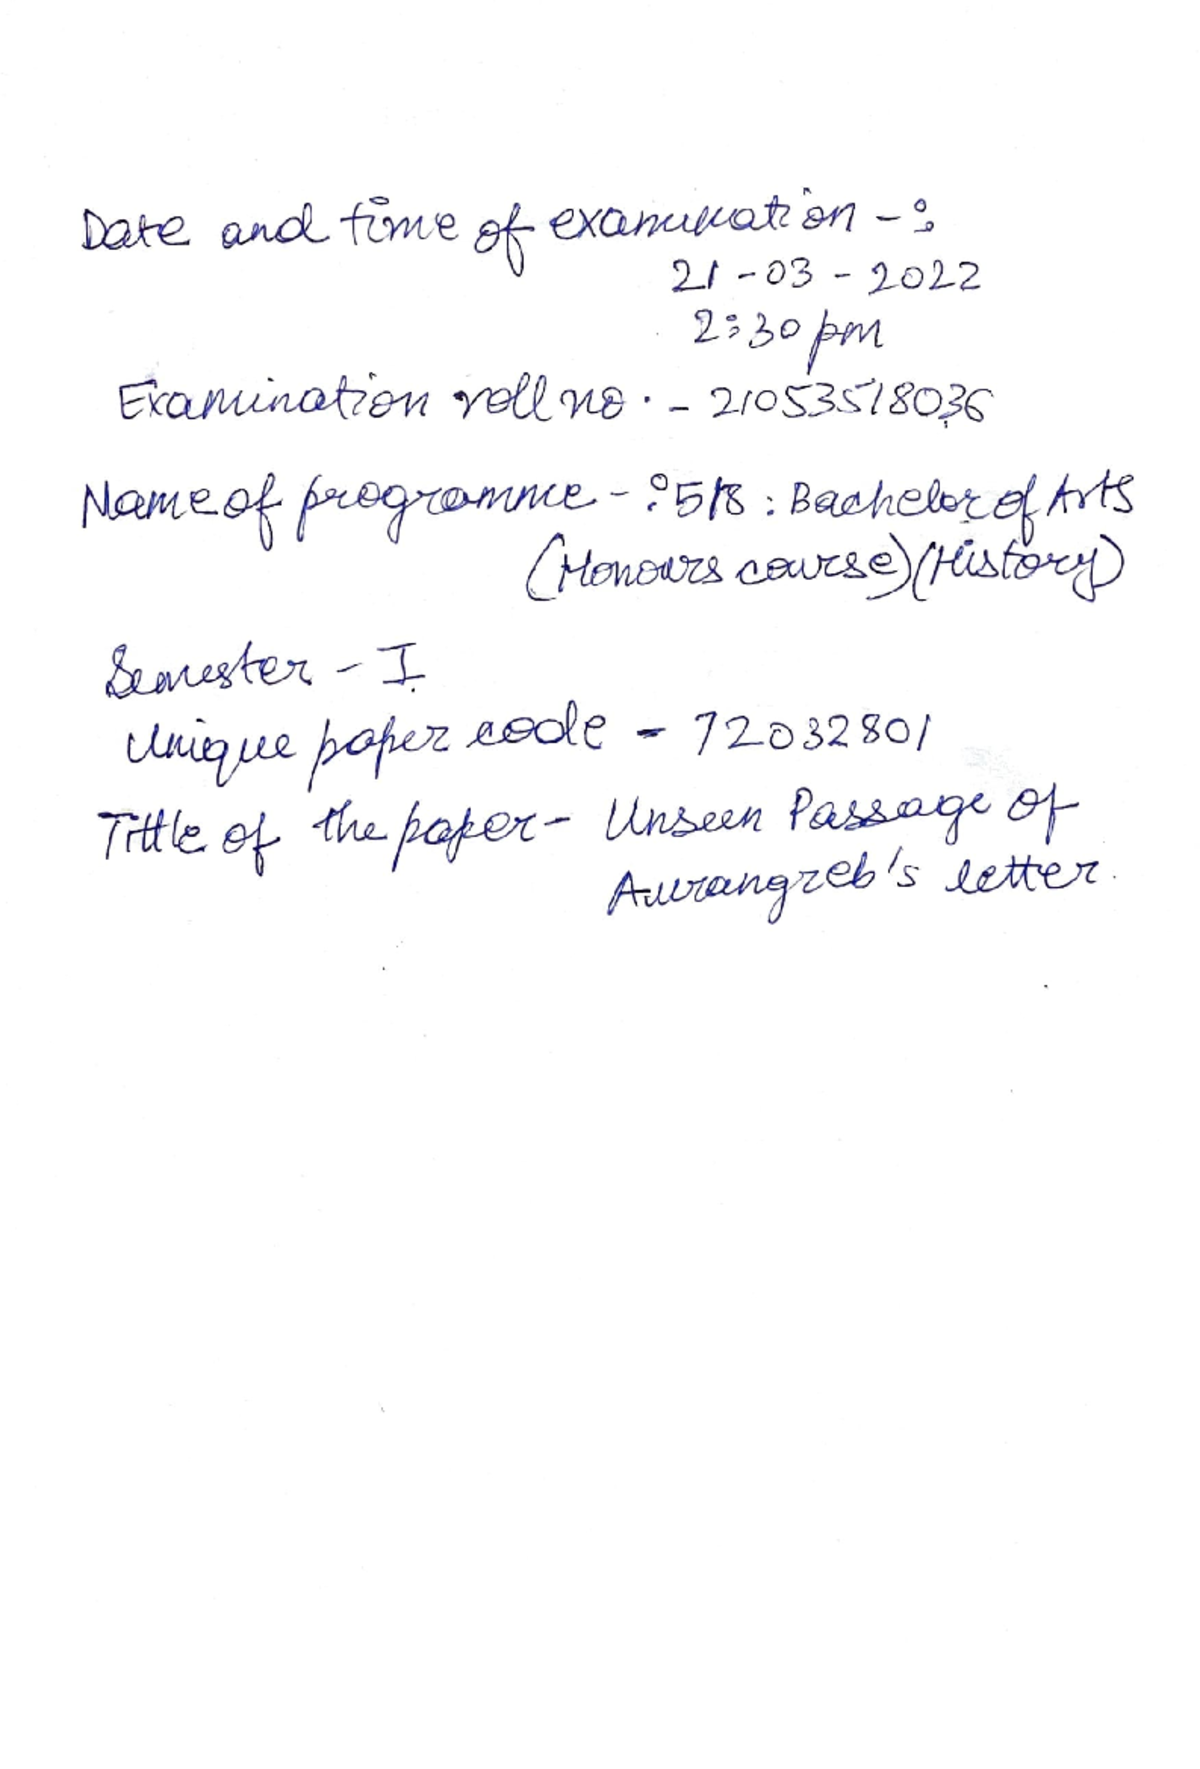 Date and time of examination -:
21-03-2022
2:30 pm
Examination roll no. - 21053518036
Name of programme -: 518 : Bachelor of Arts
(Honours course) (History)
Semester - I
Unique paper code - 72032801
Tittle of the paper - Unseen Passage of
Aurangzeb's letter.